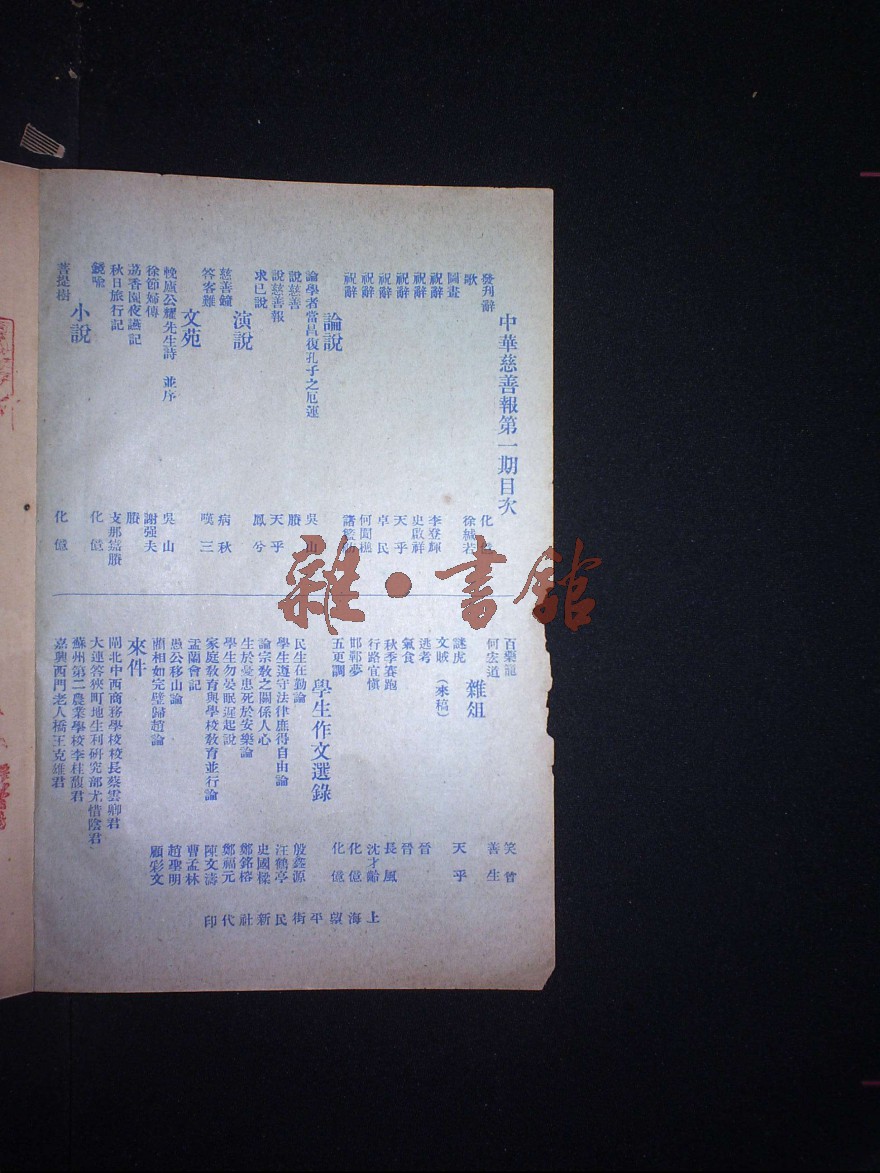 中華慈善報第一期目次
發刊辭 化億
歌 徐緘若
圖畫
祝辭 李登輝
祝辭 史啟祥
祝辭 天乎
祝辭 卓民
祝辭 何閬樵
祝辭
論說
論學者當昌復孔子之厄運 吳山
說慈善 賸
說慈善報 天乎
求已說 鳳兮
演說
慈善鐘 病秋
答客難 嘆三
文苑
輓廬公耀先生詩 並序 吳山
徐節婦傳 謝强夫
荔香園夜讌記 賸
秋日旅行記 支那嘉賸
鏡喻 化億
小說
菩提樹 化億
百藥龍 笑曾
何宏道 善生
雜俎
謎虎 天乎
文賊(來稿)
逃考 晉
氣食 晉
秋季賽跑 長風
行路宜慎 沈才齡
邯鄲夢 化億
五更調 化億
學生作文選錄
民生在勤論 殷鑫源
學生遵守法律庶得自由論 汪鶴亭
論宗敎之關係人心 史國樑
生於憂患死於安樂論 鄭銘榕
學生勿晏眠遲起說 鄭福元
家庭敎育與學校敎育並行論 陳文濤
盂蘭會記 曹孟林
愚公移山論 趙聖明
藺相如完璧歸趙論 顧彩文
來件
閘北中西商務學校校長蔡雲卿君
大連答狹町地生利研究部尤惜陰君
蘇州第二農業學校李桂馥君
嘉興西門老人橋王克雄君
上海望平街民新社代印
雜·書館